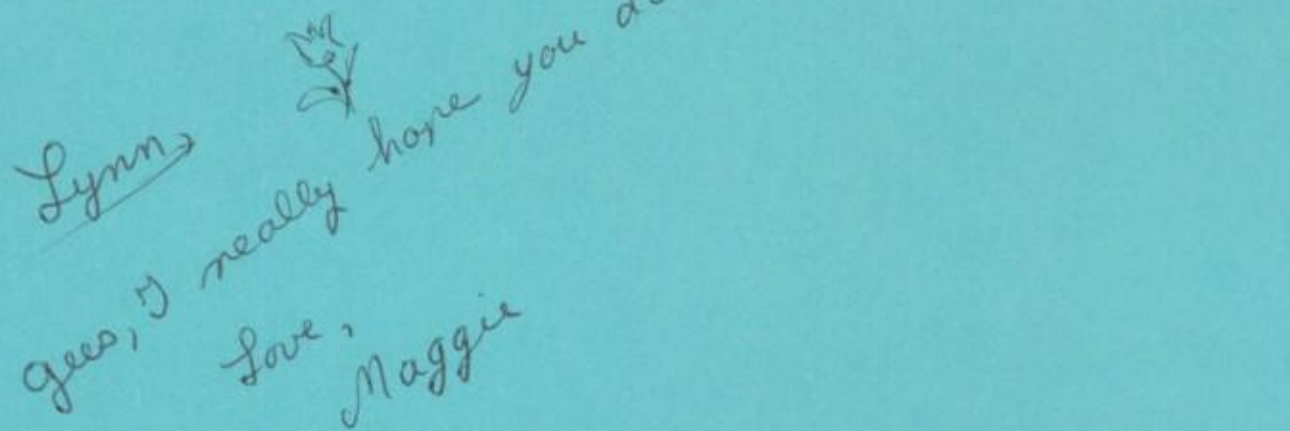 Lynn,
gees, I really hope you
Love,
Maggie